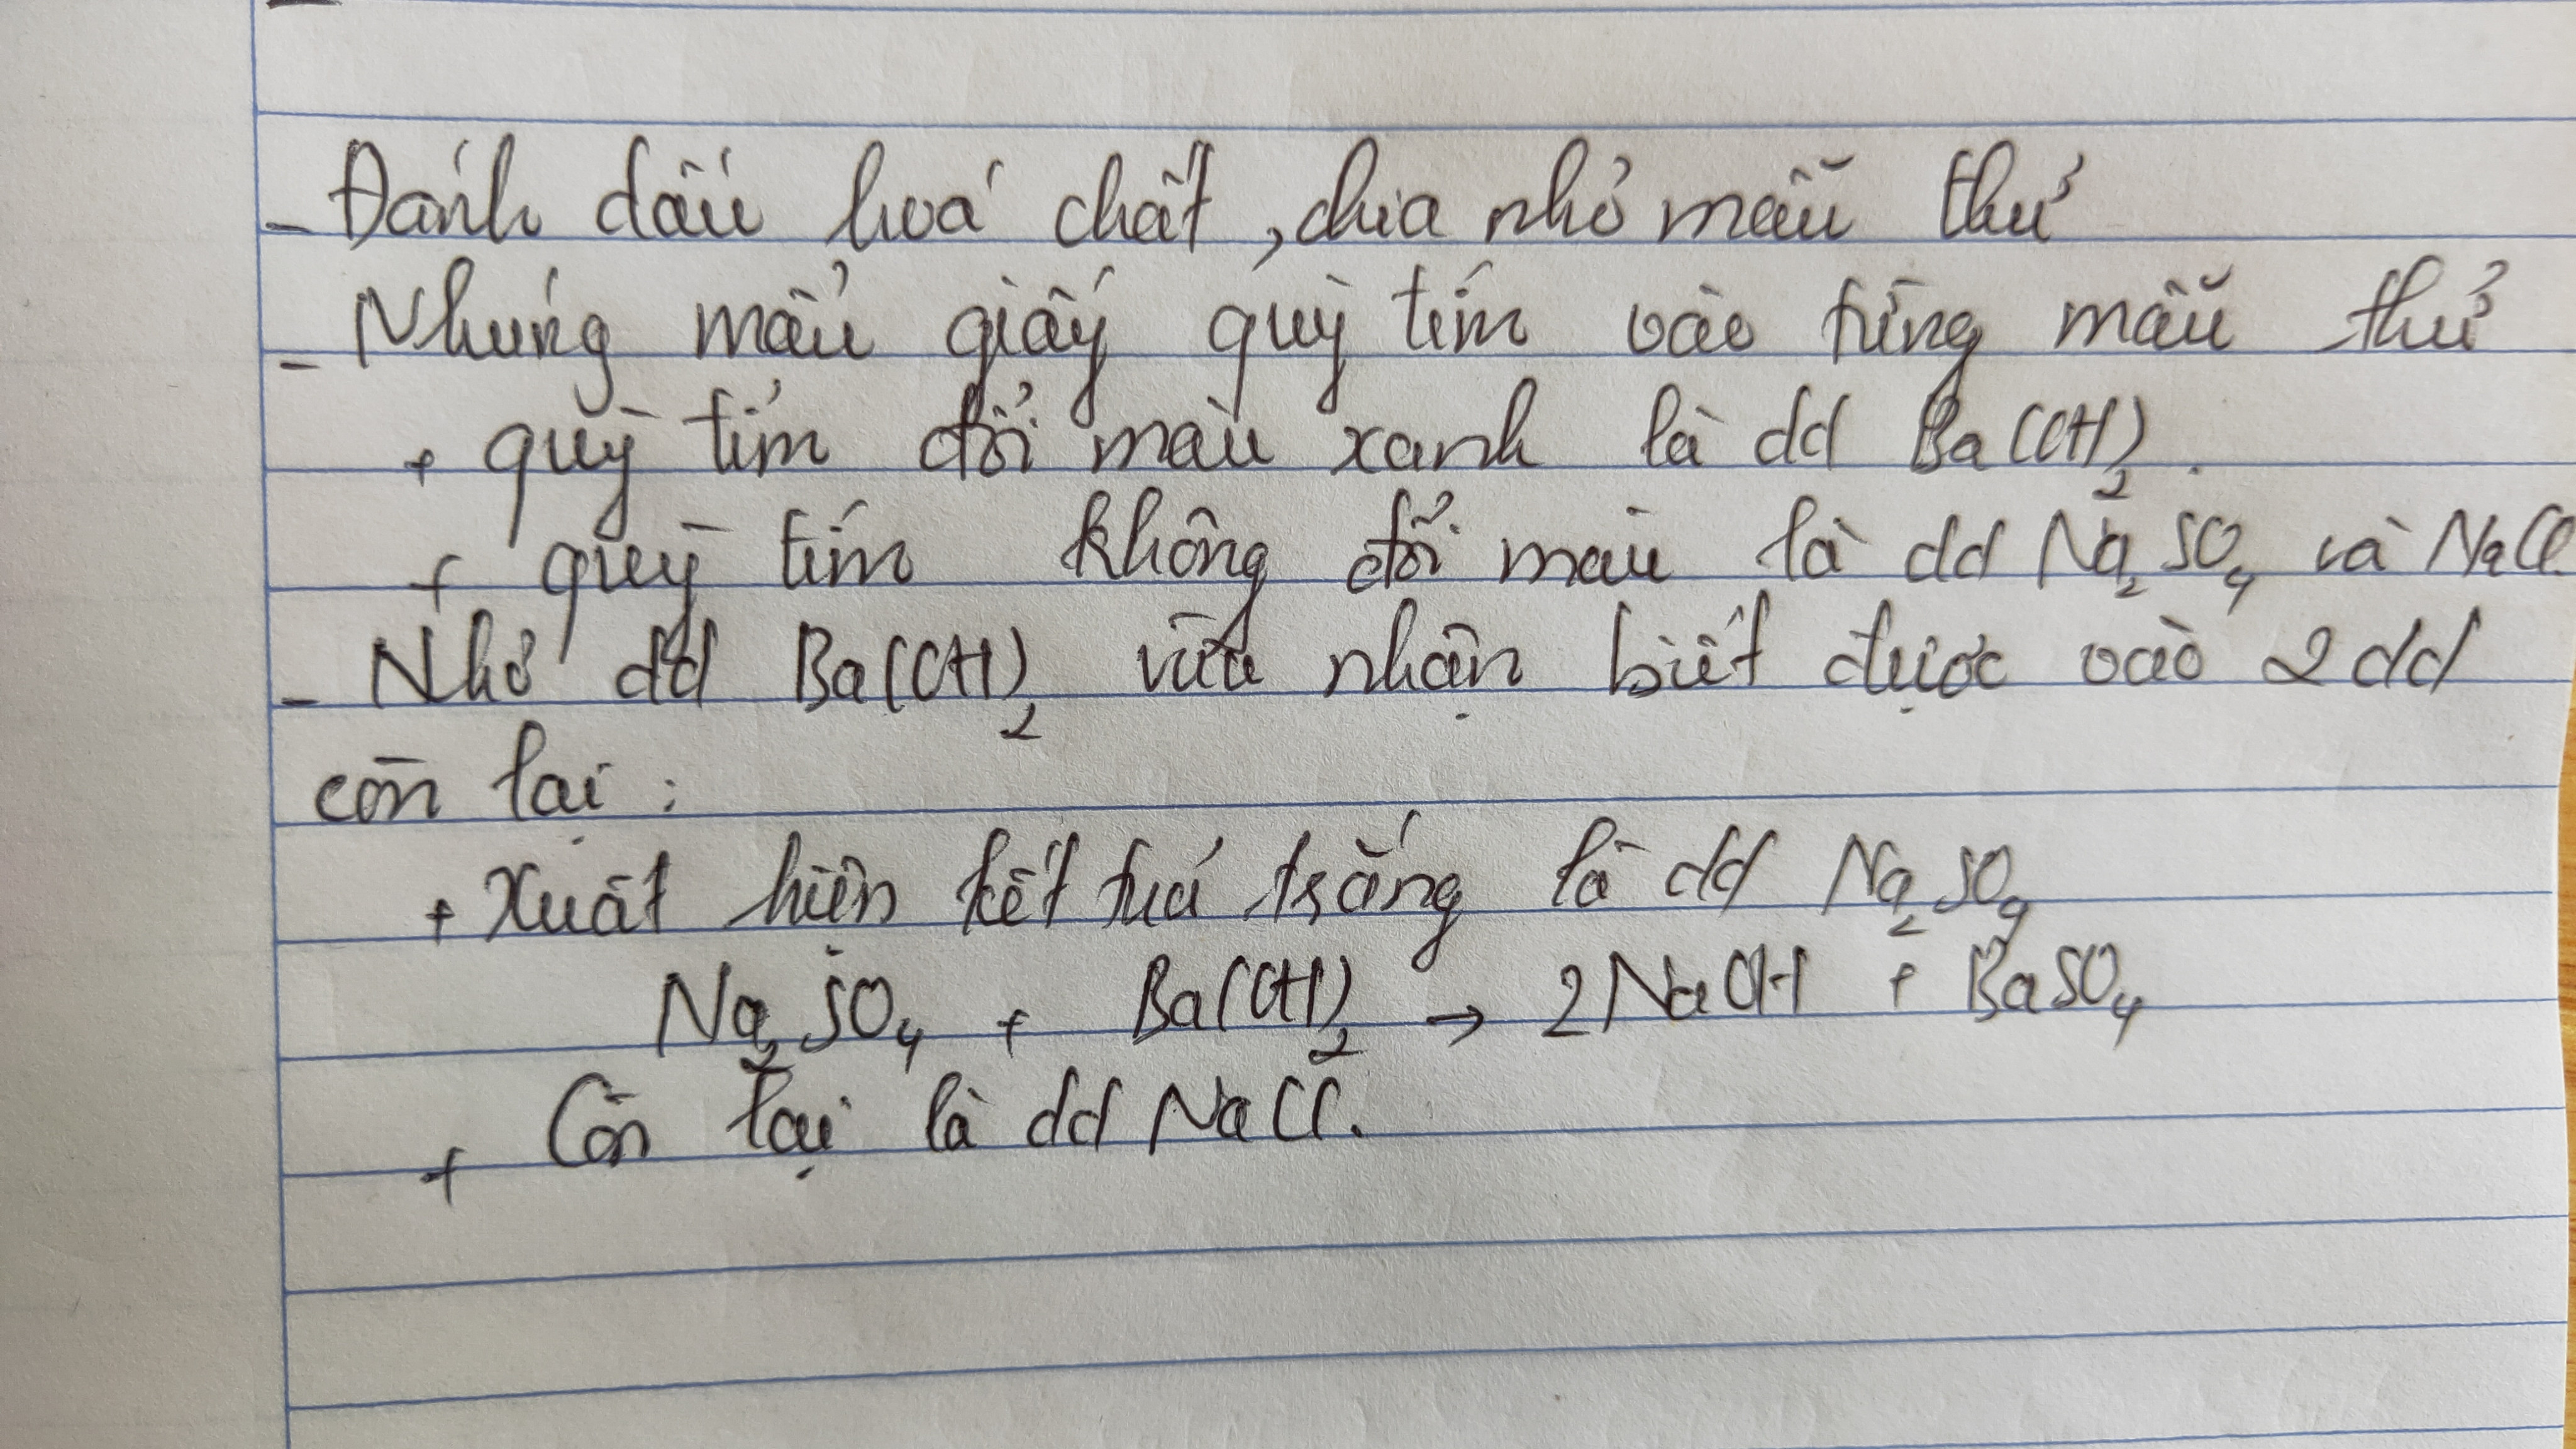 - Đánh dấu hoá chất, chia nhỏ mẫu thử
- Nhúng mẩu giấy quỳ tím vào từng mẫu thử
+ quỳ tím đổi màu xanh là dd Ba(OH)₂.
+ quỳ tím không đổi màu là dd Na₂SO₄ và NaCl
- Nhỏ dd Ba(OH)₂ vừa nhận biết được vào 2 dd
còn lại :
+ Xuất hiện kết tuả trắng là dd Na₂SO₄
Na₂SO₄ + Ba(OH)₂ → 2NaOH + BaSO₄
+ Còn lại là dd NaCl.